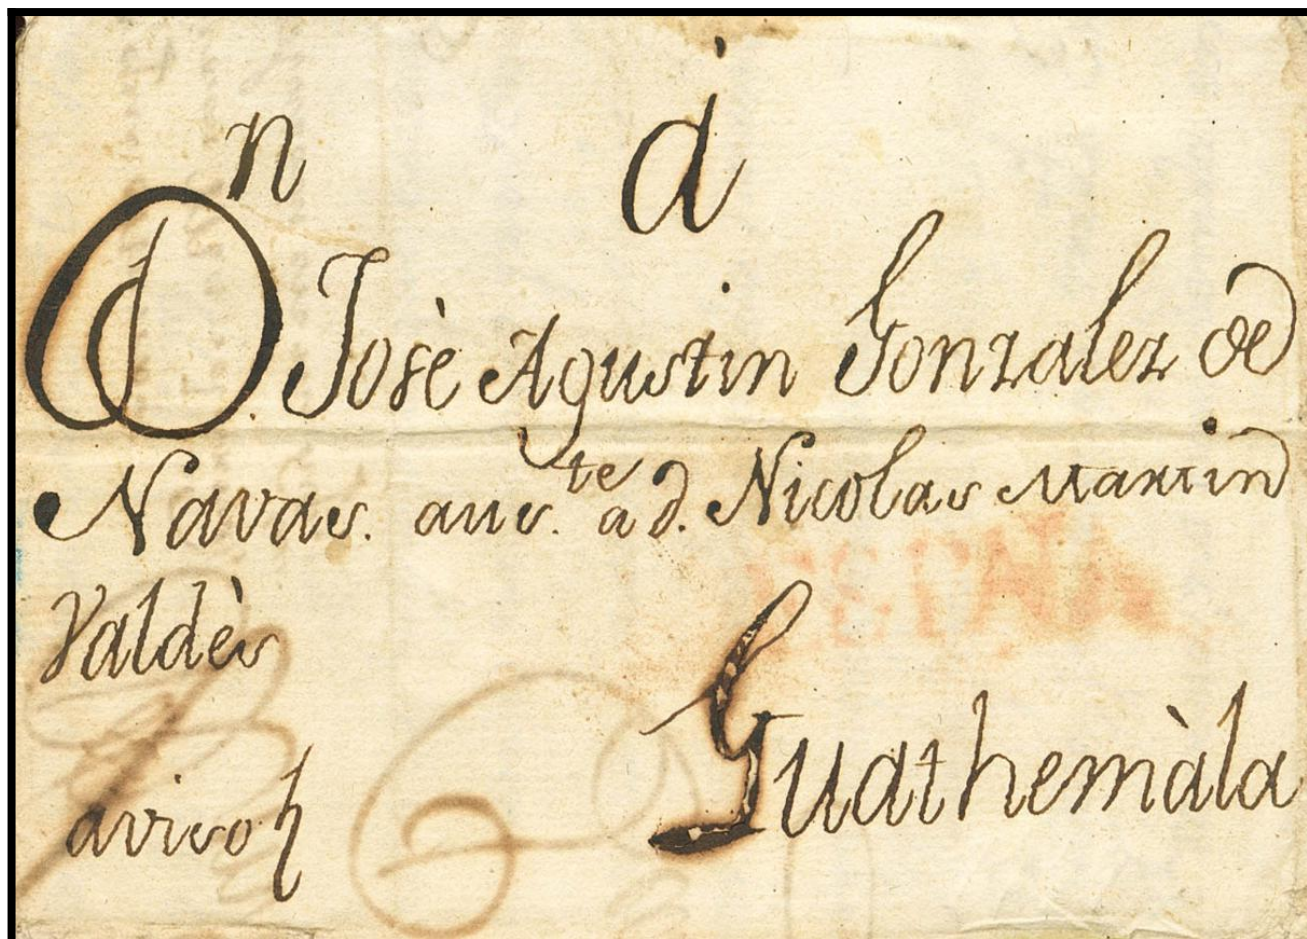 á
Dn. Josè Agustin Gonzalez de
Navas. aus.te a d. Nicolas Martin
Valdès
Guathemàla